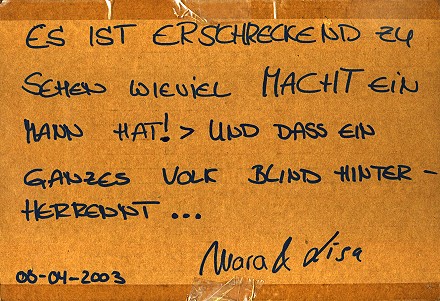 ES IST ERSCHRECKEND ZU
SEHEN WIEVIEL MACHT EIN
MANN HAT! > UND DASS EIN
GANZES VOLK BLIND HINTER-
HERRENNT...
Mara & Lisa
08-04-2003